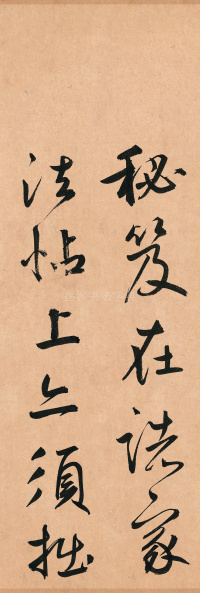 秘笈在諸家
法帖上亦須拙